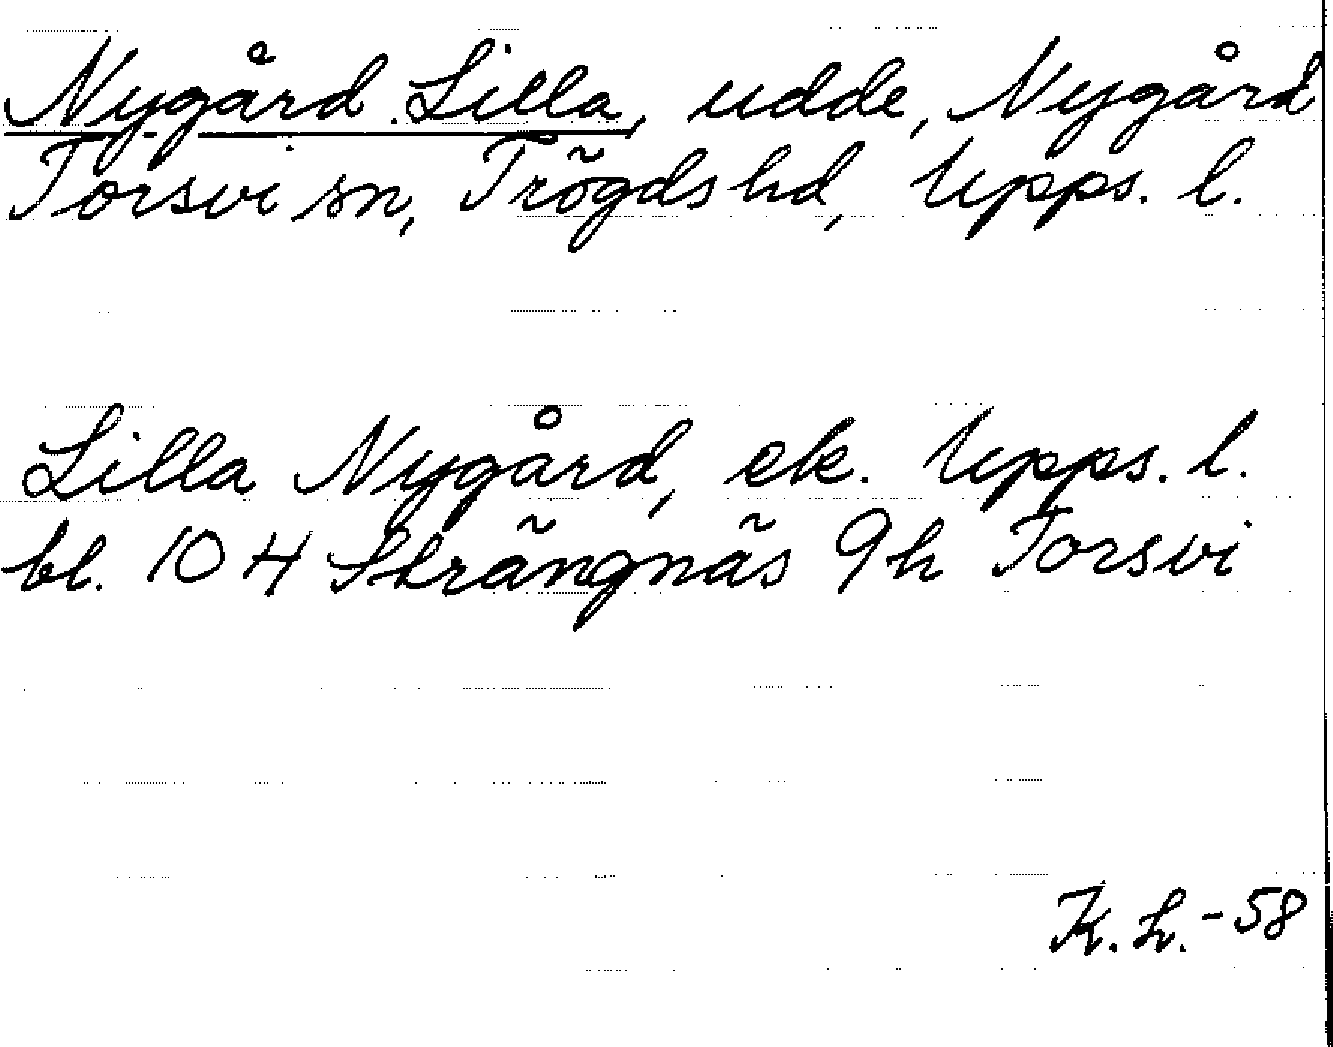 Nygård Lilla, udde, Nygård
Torsvi sn, Trögds hd, Upps. l.
Lilla Nygård, ek. Upps. l.
bl. 10 H Strängnäs 9h Torsvi
K. L. -58